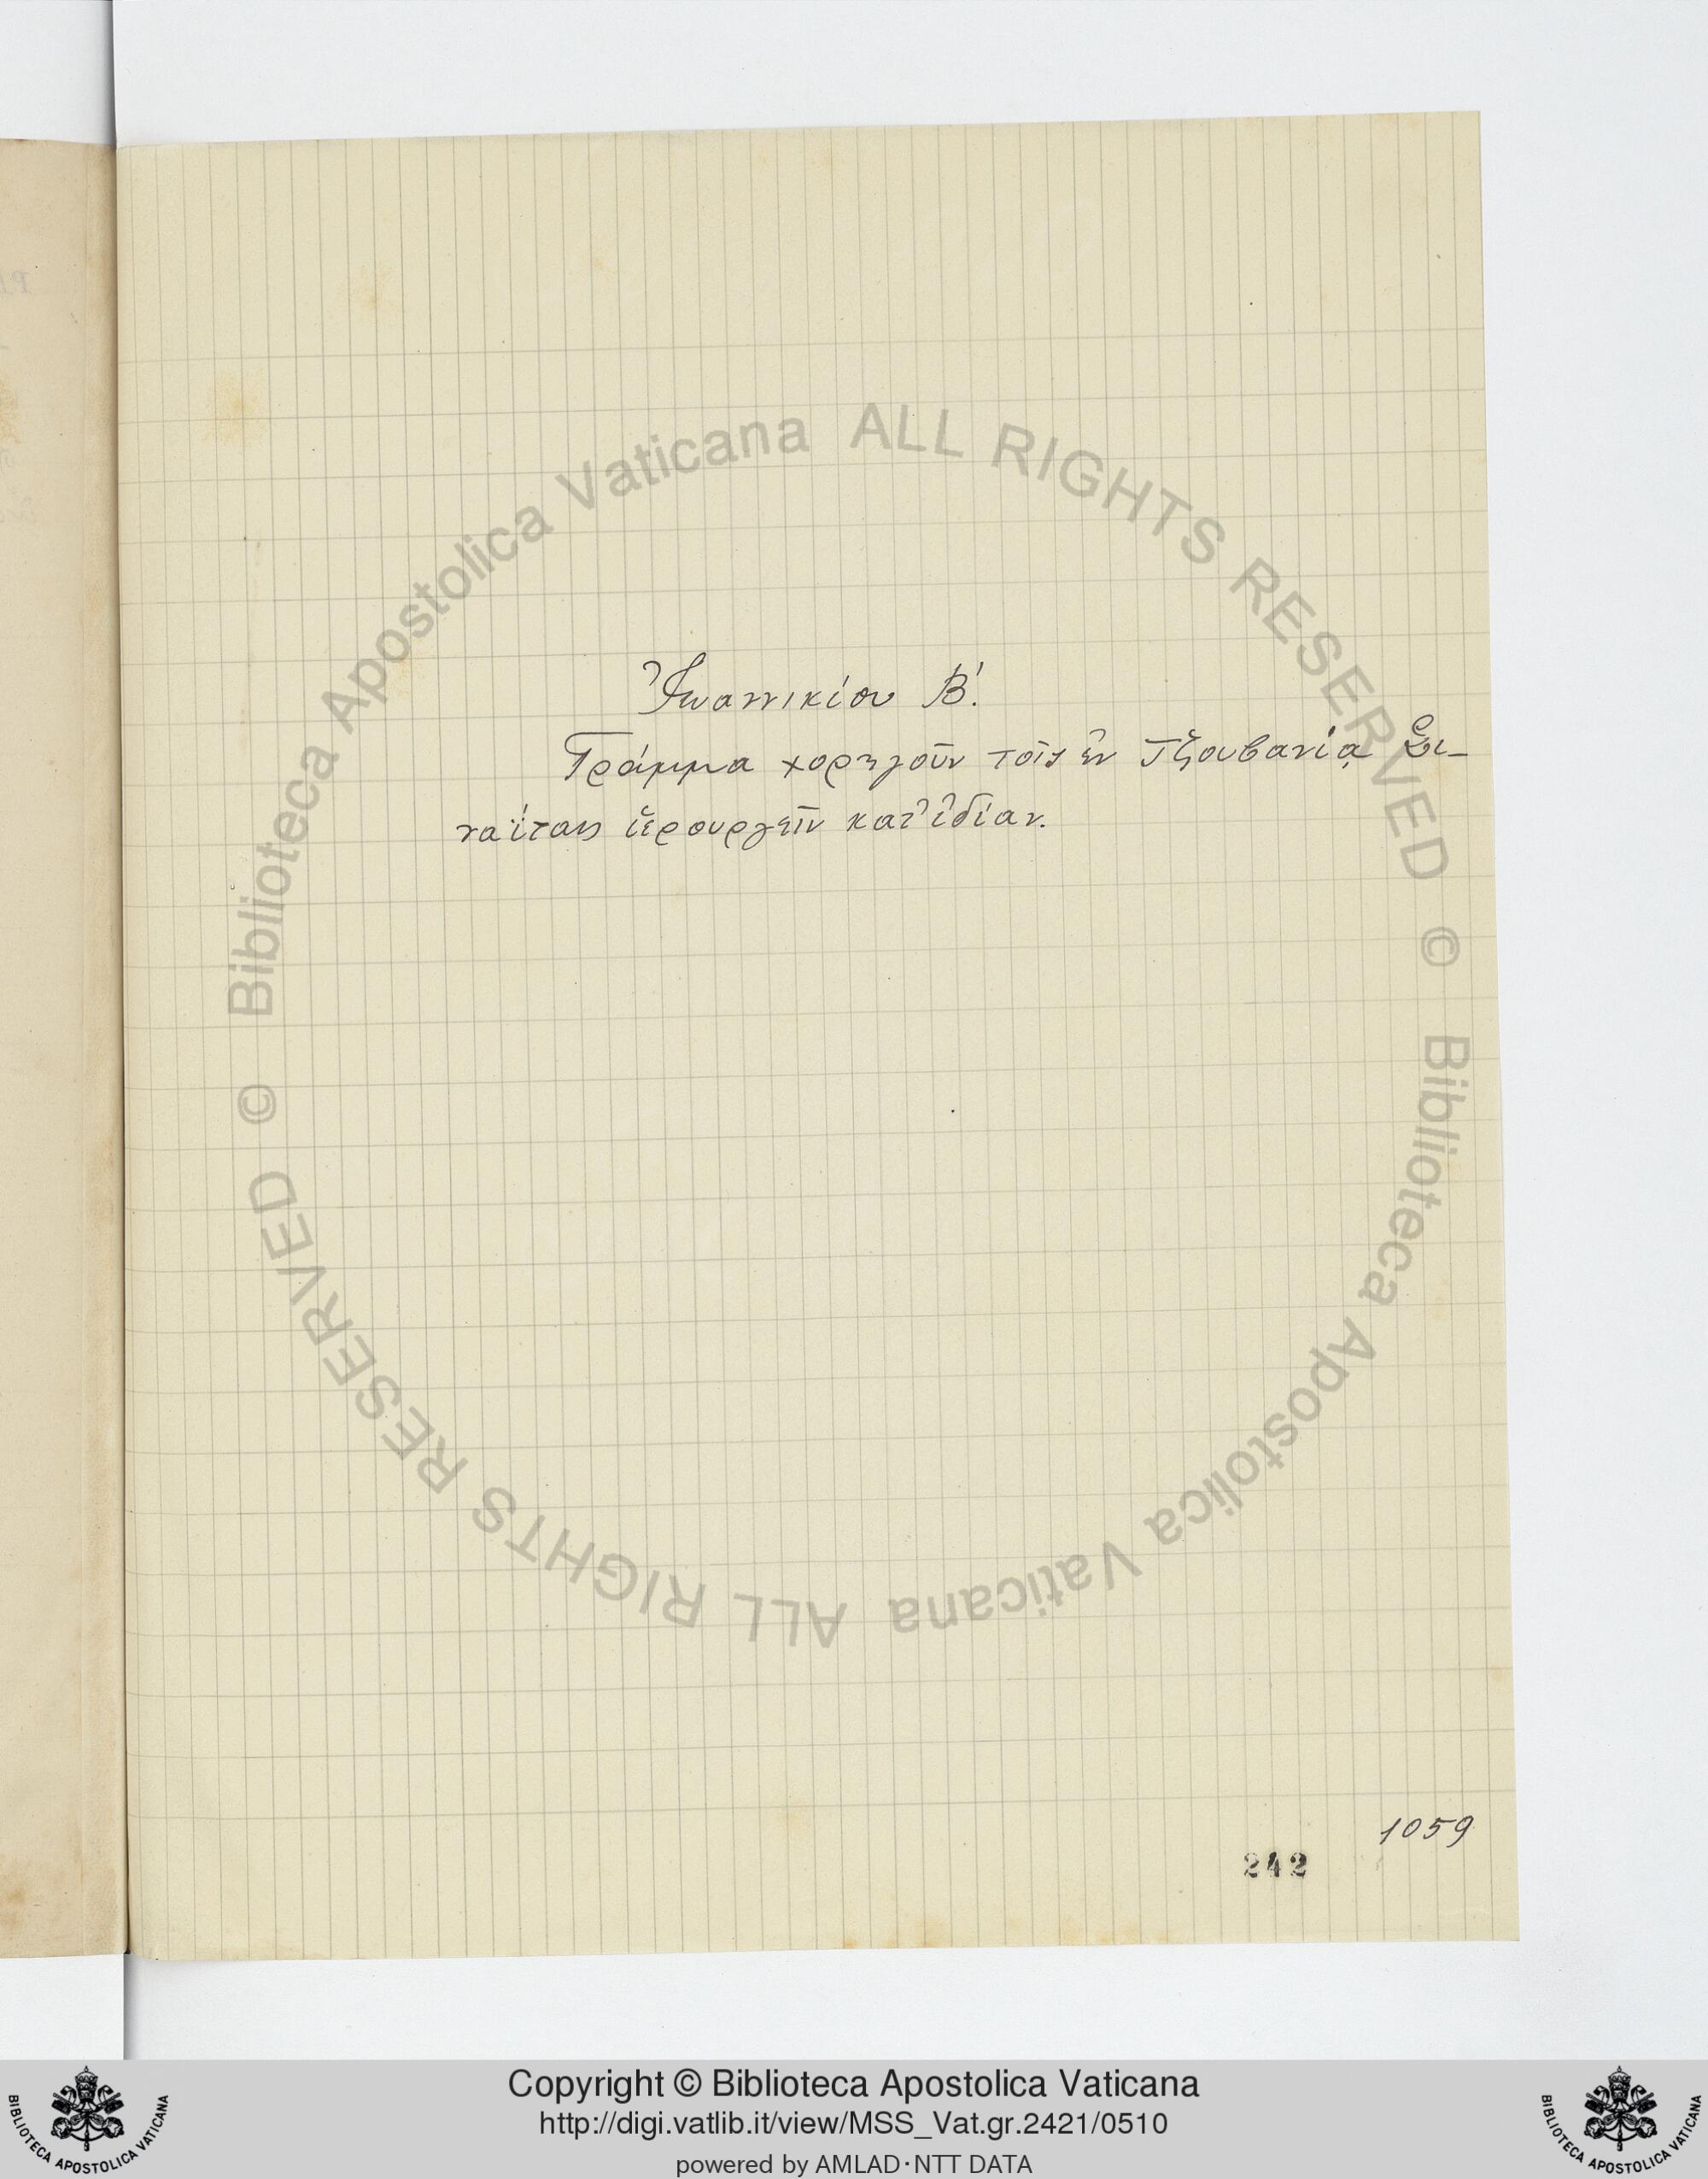 Ἰωαννικίου Β΄.
Γράμμα χορηγοῦν τοῖς ἐν Τζουβανίᾳ Σι-
ναΐταις ἱερουργεῖν κατ' ἰδίαν.
1059
242
© Biblioteca Apostolica Vaticana ALL RIGHTS RESERVED
© Biblioteca Apostolica Vaticana ALL RIGHTS RESERVED
Copyright © Biblioteca Apostolica Vaticana
http://digi.vatlib.it/view/MSS_Vat.gr.2421/0510
powered by AMLAD·NTT DATA
BIBLIOTECA APOSTOLICA VATICANA
BIBLIOTECA APOSTOLICA VATICANA